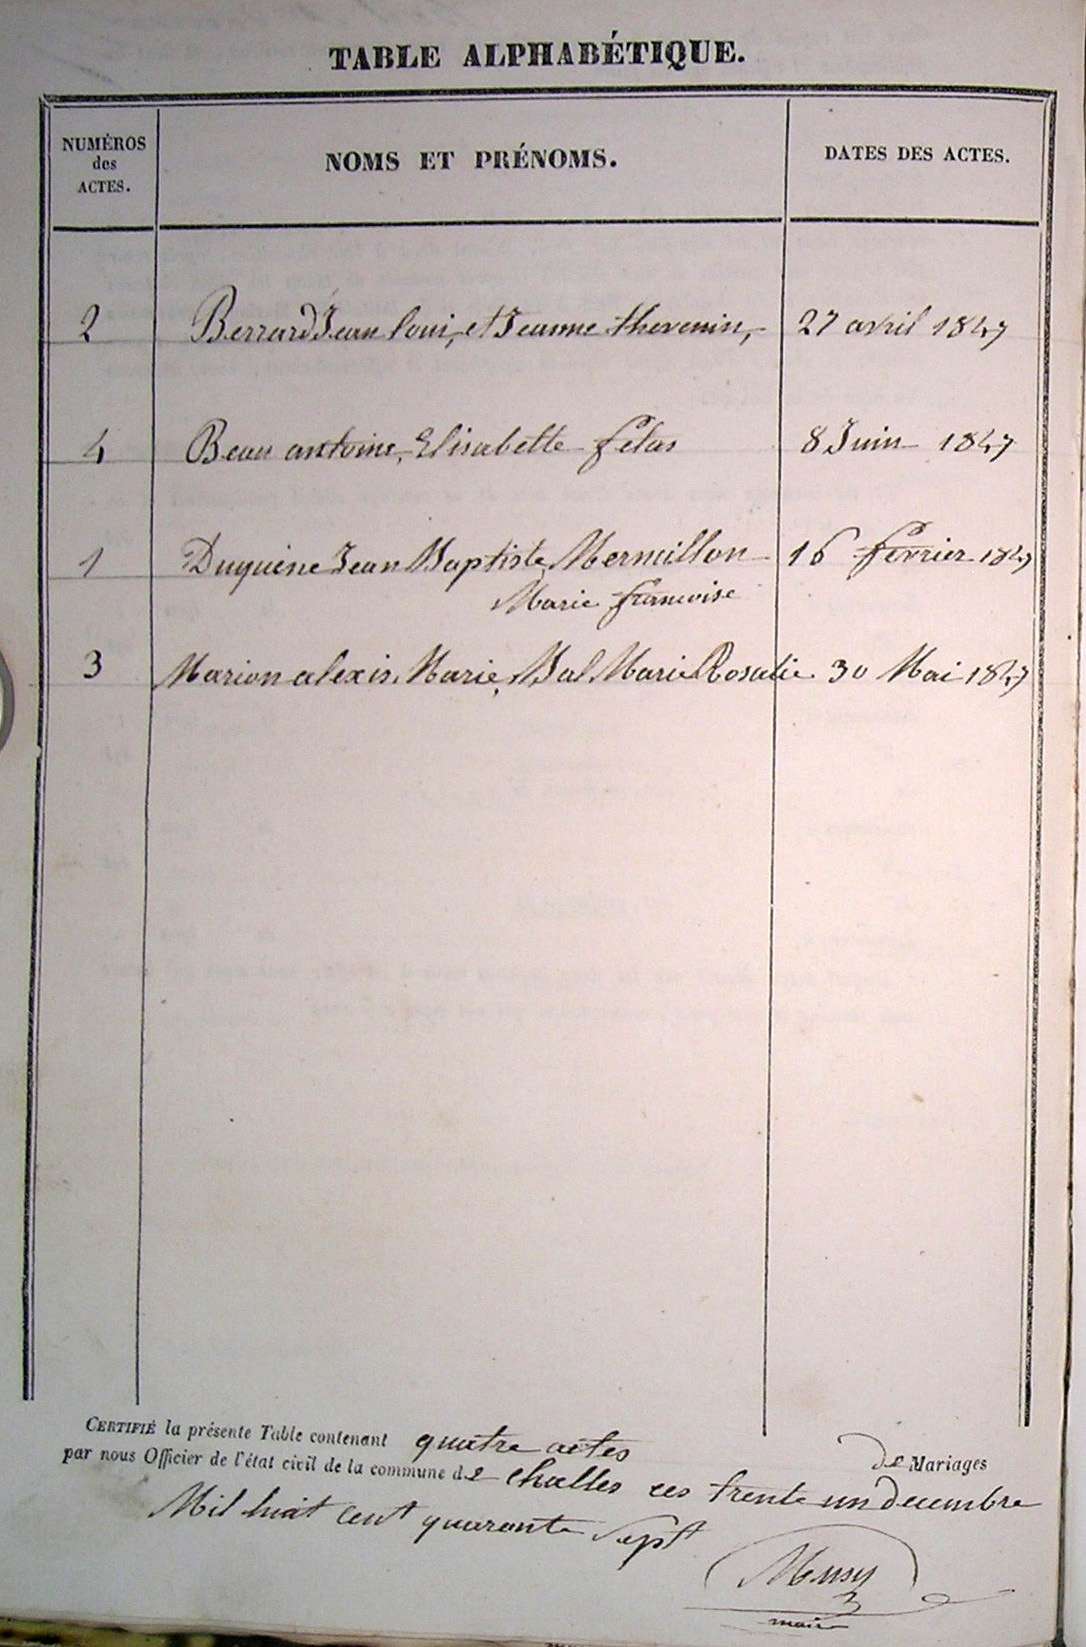 TABLE ALPHABÉTIQUE.
NUMÉROS des ACTES.
NOMS ET PRÉNOMS.
DATES DES ACTES.
2 Berrard Jean loui, et Jeanne thevenin, 27 avril 1847
4 Beau antoine, Elisabette felas 8 Juin 1847
1 Duquine Jean Baptiste, Mermillon 16 fevrier 1847
Marie francoise
3 Marion alexis, Marie, Bal Marie Rosalie 30 Mai 1847
CERTIFIÉ la présente Table contenant quatre actes de Mariages
par nous Officier de l'état civil de la commune de challes ces trente un decembre
Mil huit cent quarante Sept
maire